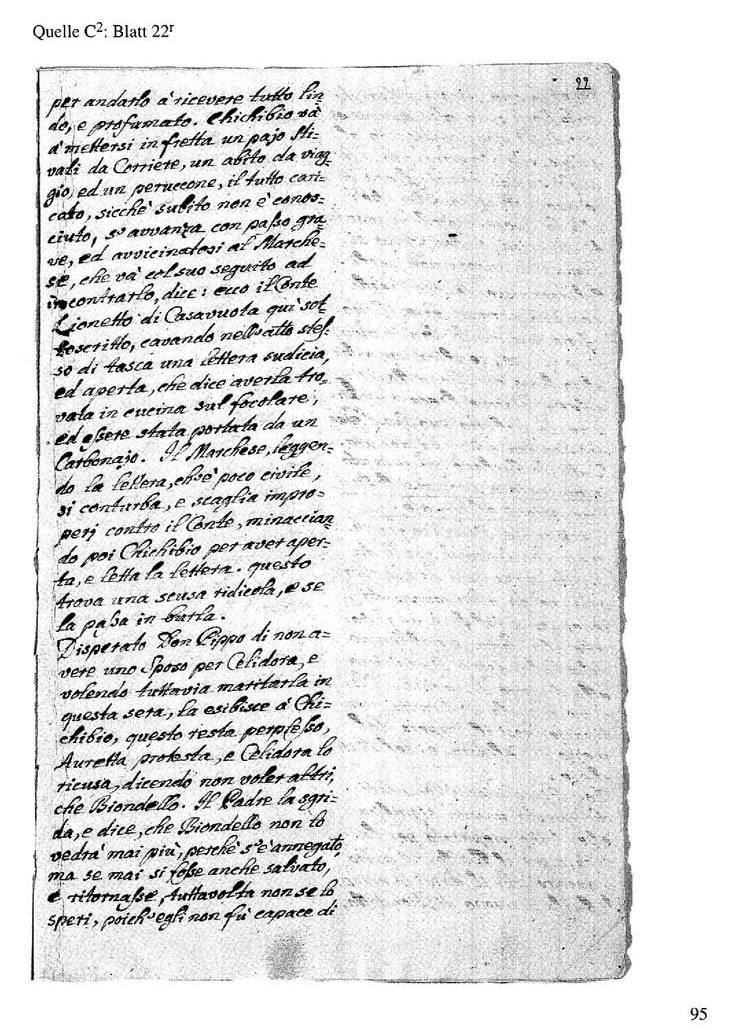 Quelle C²: Blatt 22ʳ
22
per andarlo à ricevere tutto lin=
do, e profumato. Chichibio và
à mettersi in fretta un pajo sti=
vali da Corriere, un abito da viag=
gio, ed un peruccone, il tutto cari=
cato, sicchè subito non è conos=
ciuto, s'avvanza con passo gra=
ve, ed avvicinatosi al Marche=
se, che và col suo seguito ad
incontrarlo, dice: ecco il Conte
Lionetto di Casavuota quì sot=
toscritto, cavando nell'atto stes=
so di tasca una lettera sudicia,
ed aperta, che dice averla tro=
vata in cucina sul focolare,
ed essere stata portata da un
Carbonajo. Il Marchese, leggen=
do la lettera, ch'è poco civile,
si conturba, e scaglia impro=
perj contro il Conte, minaccian=
do poi Chichibio per aver aper=
ta, e letta la lettera. questo
trova una scusa ridicola, e se
la passa in burla.
Disperato Don Pippo di non a=
vere uno Sposo per Celidora, e
volendo tuttavia maritarla in
questa sera, la esibisce à Chi=
chibio, questo resta perplesso,
Auretta protesta, e Celidora lo
ricusa, dicendo non voler altri,
che Biondello. Il Padre la sgri=
da, e dice, che Biondello non lo
vedrà mai più, perchè s'è annegato,
ma se mai si fosse anche salvato,
e ritornasse, tuttavolta non se lo
speri, poich'egli non fù capace di
95